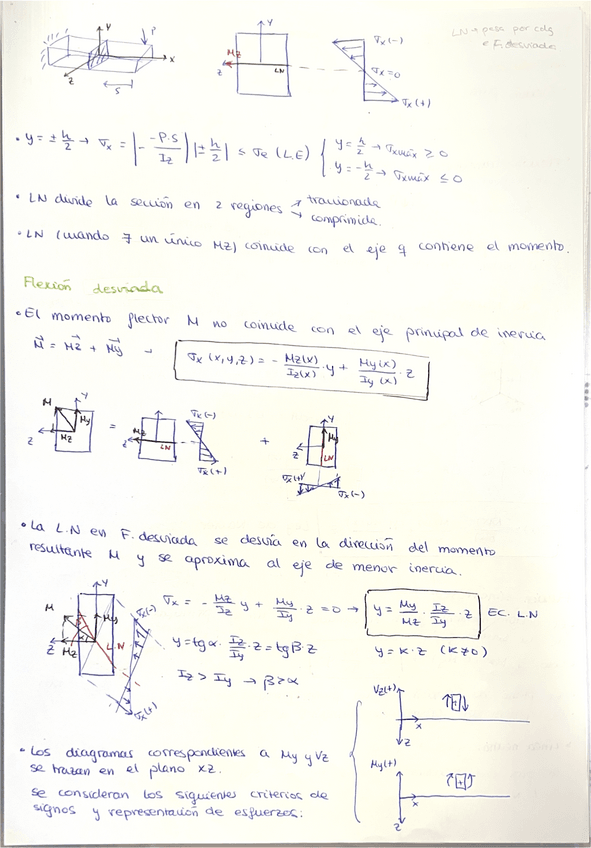 LN → pasa por cdg
e F. desviada
y
P
x
z
s
y
Mz
z
LN
σx(-)
σx=0
σx(+)
• y = ± h/2 → σx = |- -P·S/Iz| |± h/2| ≤ σe (L.E) { y = h/2 → σxmáx ≥ 0
y = -h/2 → σxmáx ≤ 0
• LN divide la sección en 2 regiones → traccionada
→ comprimida.
• LN (cuando ∃ un único Mz) coincide con el eje q contiene el momento.
Flexión desviada
• El momento flector M no coincide con el eje principal de inercia
M = Mz + My → σx (x,y,z) = - Mz(x)/Iz(x) · y + My(x)/Iy(x) · z
M
My
z
Mz
=
Mz
z
LN
σx(-)
σx(+)
+
My
z
LN
σx(+)
σx(-)
• La L.N en F. desviada se desvía en la dirección del momento
resultante M y se aproxima al eje de menor inercia.
y
M
My
β
α
z
Mz
L.N
σx(-)
σx(+)
σx = - Mz/Iz y + My/Iy · z = 0 → y = My/Mz · Iz/Iy · z EC. L.N
y = tgα · Iz/Iy · z = tgβ · z
y = K · z (K≠0)
Iz > Iy → β > α
Vz(+)
x
z
+
My(+)
x
z
+
• Los diagramas correspondientes a My y Vz
se trazan en el plano xz.
se consideran los siguientes criterios de
signos y representación de esfuerzos: